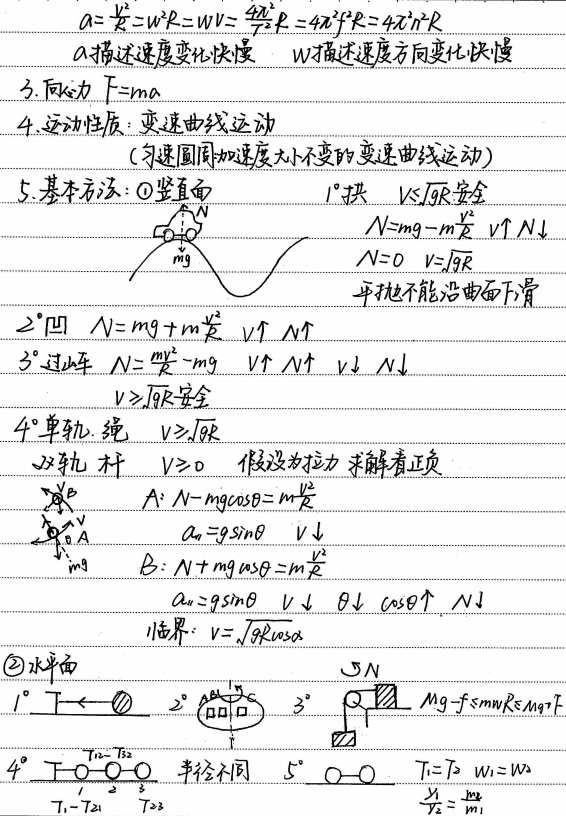 a=v²/R=w²R=wv=4π²/T²R=4π²f²R=4π²n²R
a描述速度变化快慢 w描述速度方向变化快慢
3.向心力 F=ma
4.运动性质:变速曲线运动
(匀速圆周:加速度大小不变的变速曲线运动)
5.基本方法:①竖直面 1°拱 v≤√gR安全
N
mg
N=mg-mv²/R v↑ N↓
N=0 v=√gR
平抛也不能沿曲面下滑
2°凹 N=mg+mv²/R v↑ N↑
3°过山车 N=mv²/R-mg v↑ N↑ v↓ N↓
v≥√gR安全
4°单轨.绳 v≥√gR
双轨 杆 v≥0 假设为拉力 求解看正负
v B
v
θ A
mg
A:N-mgcosθ=mv²/R
a₁₁=gsinθ v↓
B:N+mgcosθ=mv²/R
a₁₁=gsinθ v↓ θ↓ cosθ↑ N↓
临界:v=√gRcosα
②水平面
1° 2° A B C 3° N Mg-f≤mwR≤Mg+f
4° T₁₂-T₃₂ 半径不同 5° T₁=T₂ w₁=w₂
1 2 3
T₁-T₂₁ T₂₃ r₁/r₂=m₂/m₁